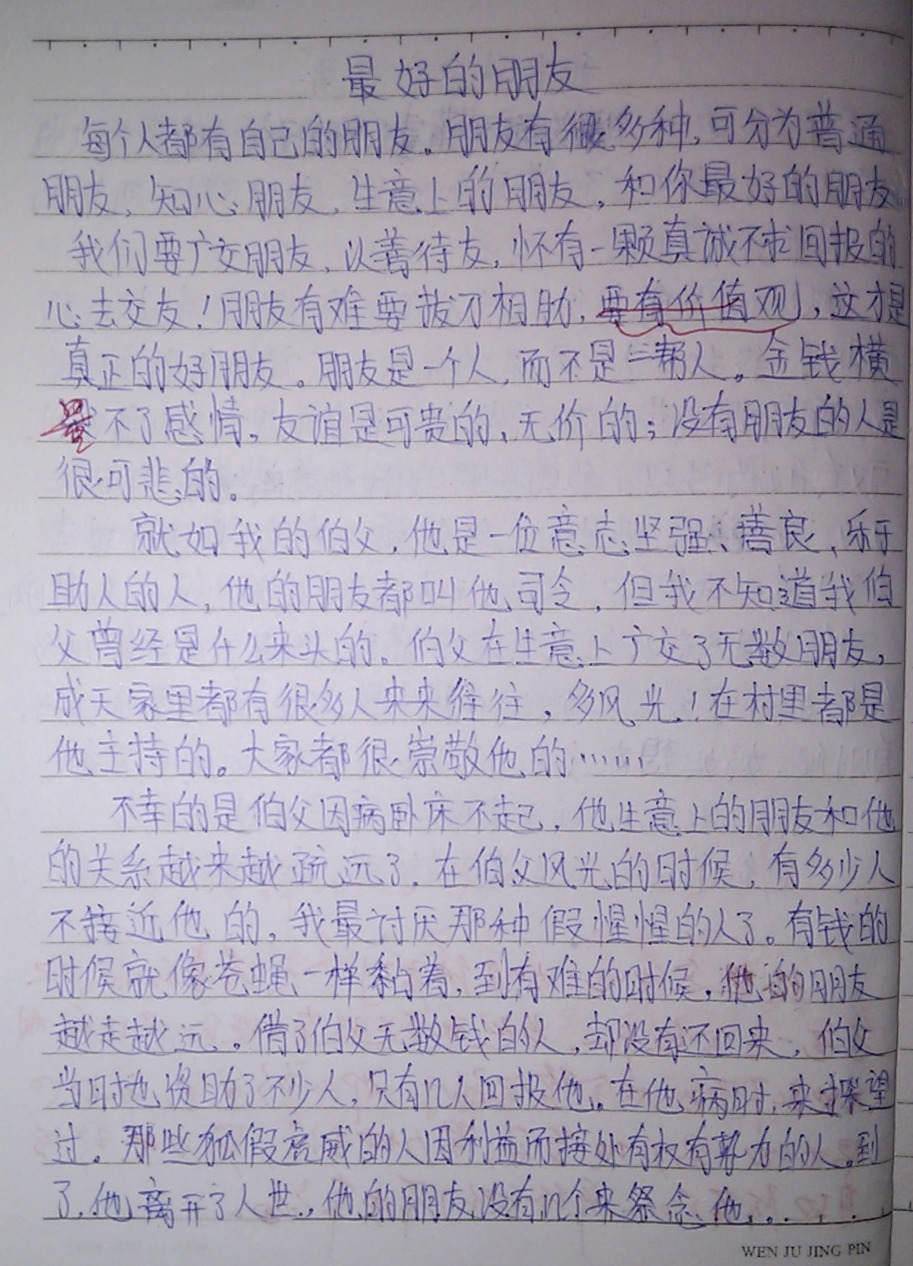 最好的朋友
每个人都有自己的朋友。朋友有很多种,可分为普通
朋友,知心朋友,生意上的朋友,和你最好的朋友
我们要广交朋友,以善待友,怀有一颗真诚不求回报的
心去交友!朋友有难要拔刀相助,要有价值观,这才是
真正的好朋友。朋友是一个人,而不是一帮人。金钱横
量不了感情。友谊是可贵的,无价的;没有朋友的人是
很可悲的。
就如我的伯父,他是一位意志坚强、善良,乐于
助人的人,他的朋友都叫他司令,但我不知道我伯
父曾经是什么来头的。伯父在生意上广交了无数朋友,
成天家里都有很多人来来往往,多风光!在村里都是
他主持的。大家都很崇敬他的……
不幸的是伯父因病卧床不起,他生意上的朋友和他
的关系越来越疏远了,在伯父风光的时候,有多少人
不接近他的,我最讨厌那种假惺惺的人了。有钱的
时候就像苍蝇一样黏着,到有难的时候,他的朋友
越走越远。借了伯父无数钱的人,却没有还回来,伯父
当时也资助了不少人,只有几人回报他。在他病时,来探望
过。那些狐假虎威的人因利益而接处有权有势力的人。到
了,他离开了人世,他的朋友没有几个来祭念他...
WEN JU JING PIN